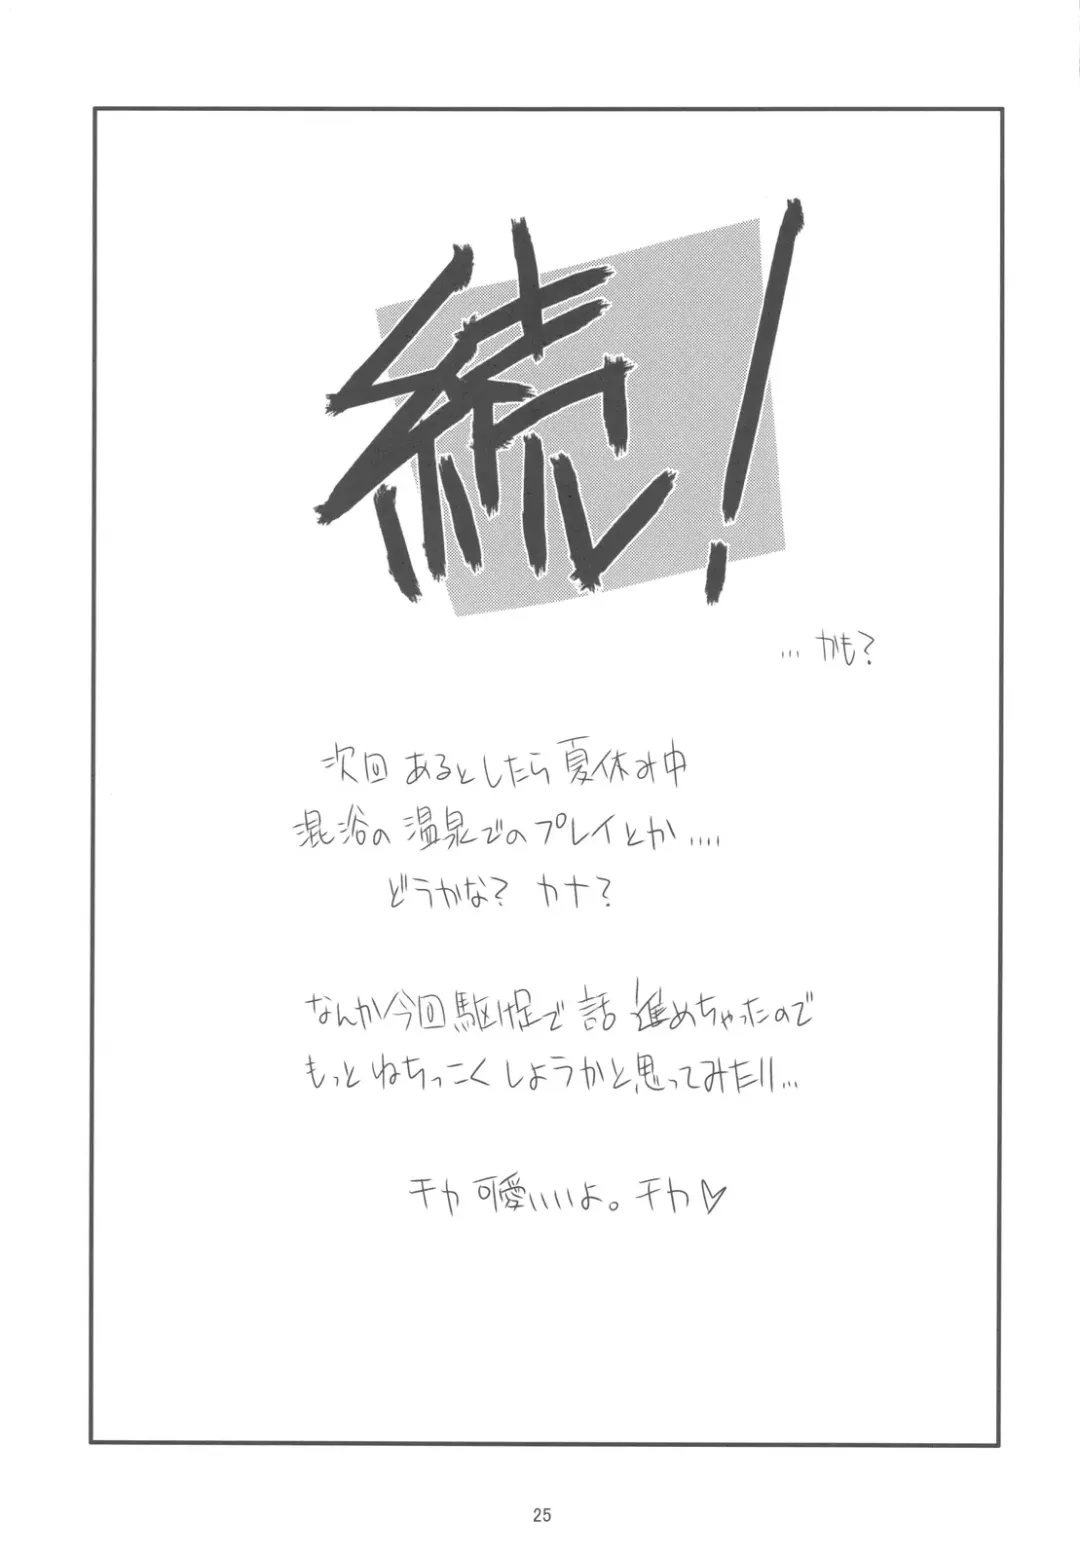 続!
… かも?
次回 あるとしたら 夏休み中
混浴の 温泉でのプレイとか....
どうかな? カナ?
なんか今回 駆け足で 話 進めちゃったので
もっと ねちっこく しようかと思ってみたり…
チカ 可愛いいよ。チカ♡
25